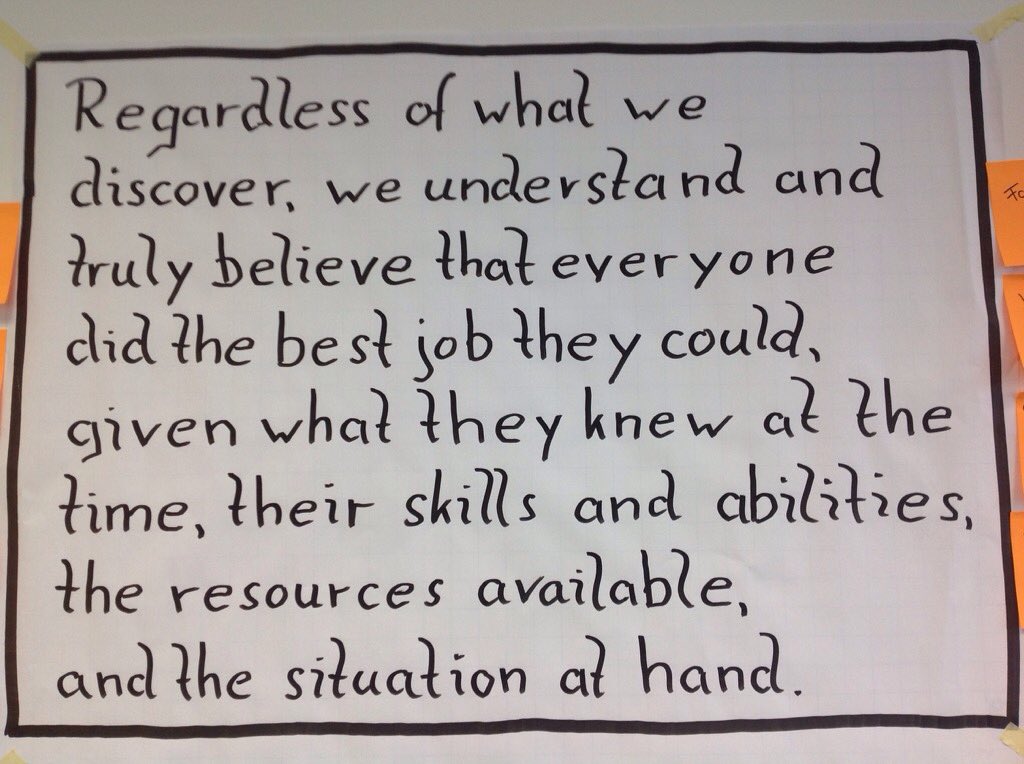 Regardless of what we
discover, we understand and
truly believe that everyone
did the best job they could,
given what they knew at the
time, their skills and abilities,
the resources available,
and the situation at hand.